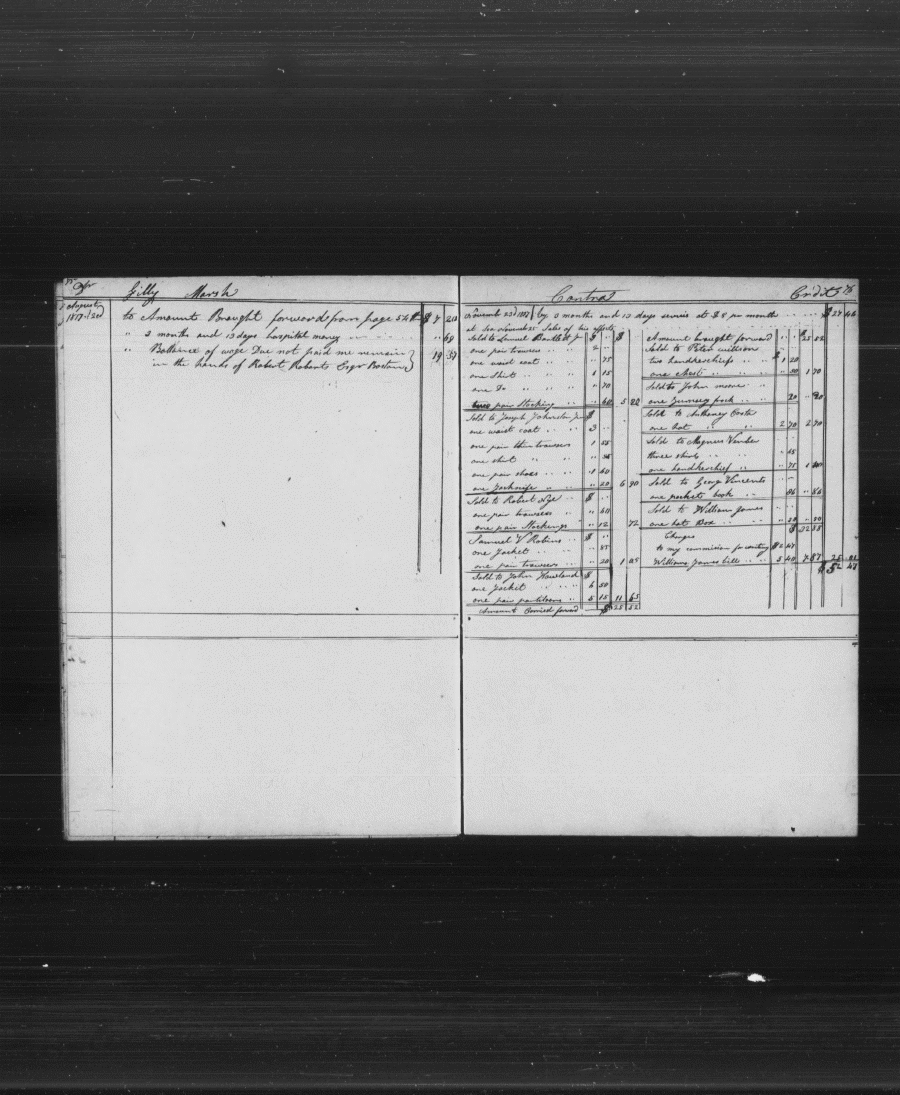 Dr
Gilly Marsh
August
1817
to Amount Brought forward from page 54 $ 7 20
" 3 months and 13 days hospital money " 69
" Ballance of wage Due not paid me remain
in the hands of Robert Roberts Esqr Boston 19 37
Contra
November 23d 1817 by 3 months and 13 days servis at $8 pr month $ 27 46
at Sea Sales of his effects
Sold to Samuel Bartlett Jr $ $
one pair trowsers 2
one waist coat " 75
one Shirt 1 15
one Do " 70
pair Stocking 5 22
Sold to Joseph Johnston Jr $
one waist coat 3
one pair thin trowsers 1
one shirt
one pair shoes 1 40
one Jacknife " 20 6 90
Sold to Robert Nye $
one pair trowsers " 60
one pair Stockings " 12 72
Samuel V Robins $
one Jacket " 85
one pair trowsers " 20 1 05
Sold to John Howland $
one Jacket 6 50
one pair pantiloons 5 15 11 65
Amount Carried forward $ 25 52
Amount brought forward 25 52
Sold to Peter
two handkerchiefs $ 1 20
one Chest " 50 1 70
Sold to John moore
one Gurnsey frock 20 " 20
Sold to Anthoney
one hat 2 70 2 70
Sold to Magnus
three shirts
one handkerchief " 75
Sold to George Vincent
one pockett book " 86 " 86
Sold to William James
one hat Box " 20 " 20
$ 32 38
Charges
to my commission for $ 2 47
William James bill 5 40 7 87
$ 52 47